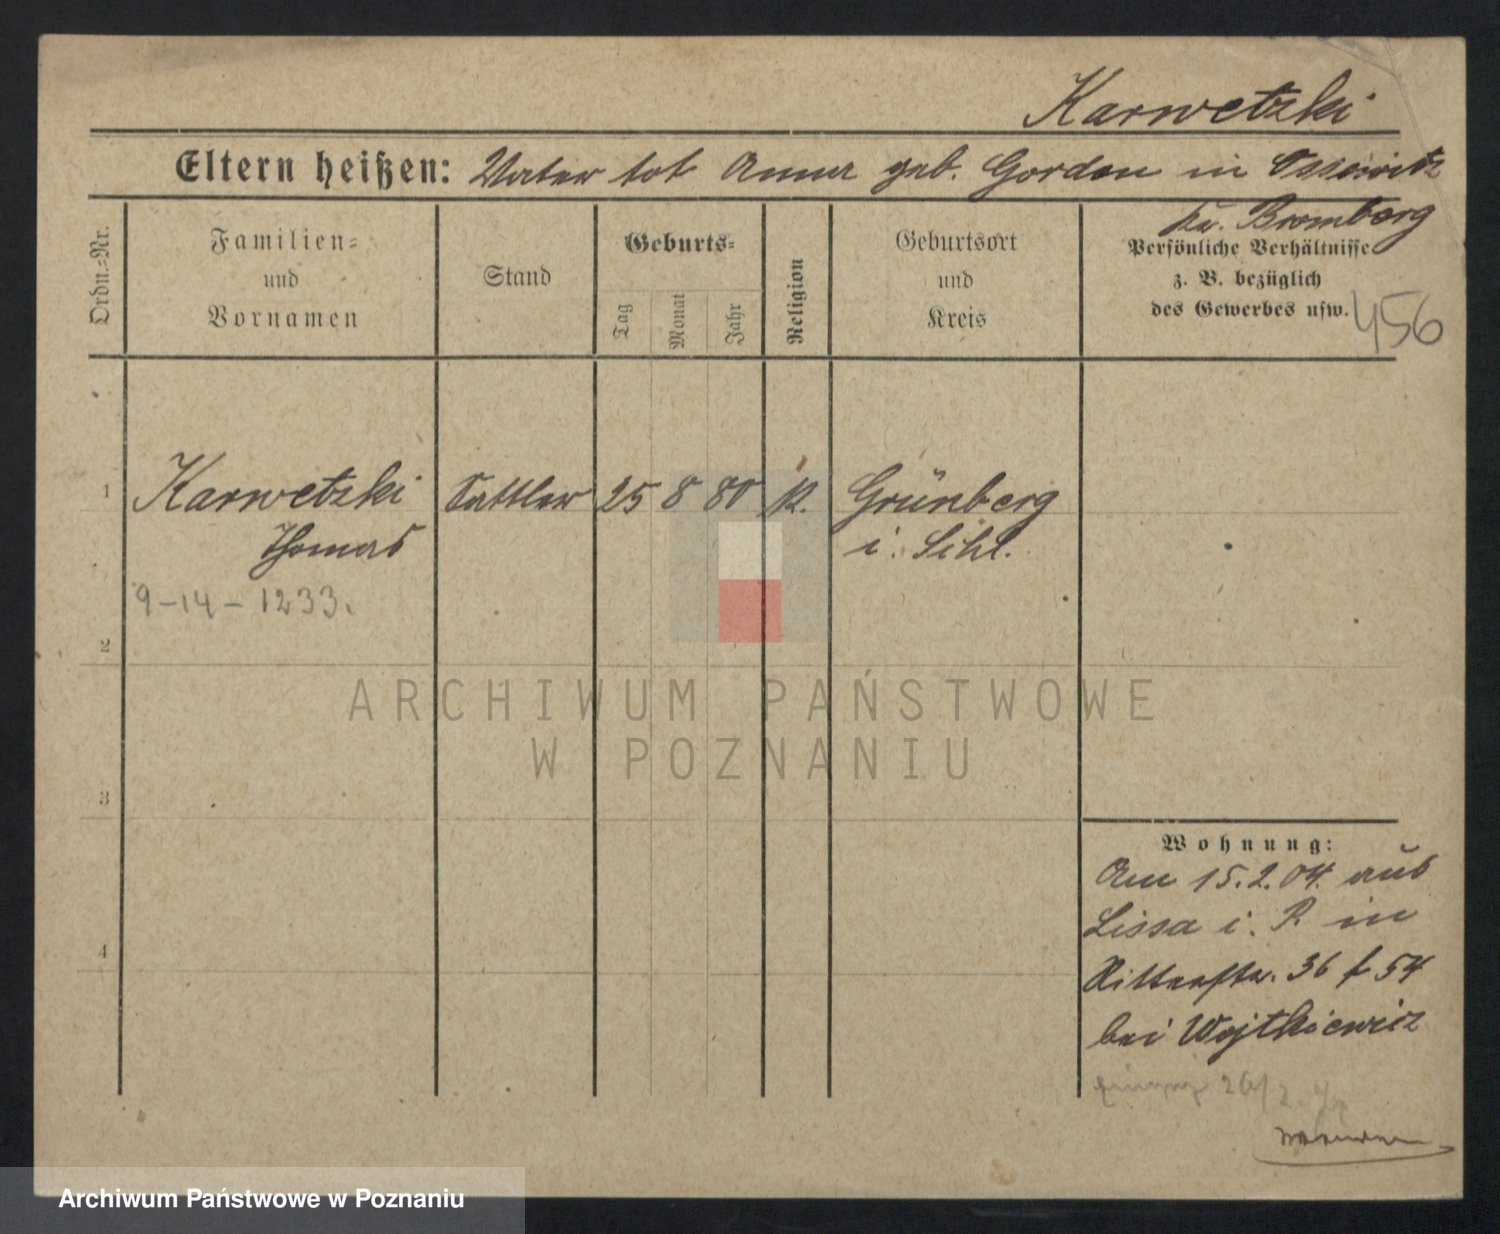 Karwetzki
Eltern heißen: Vater tot Anna geb. Gordon in
Kr. Bromberg
Ordn.-Nr.
Familien-
und
Vornamen
Stand
Geburts-
Tag
Monat
Jahr
Religion
Geburtsort
und
Kreis
Persönliche Verhältnisse
z. B. bezüglich
des Gewerbes usw.
456
1
Karwetzki Sattler 25 8 80 k. Grünberg
Thomas i. Schl.
9-14-1233.
2
ARCHIWUM PAŃSTWOWE
W POZNANIU
3
Wohnung:
Am 15.2.04. aus
Lissa i. P. in
4
Ritterstr. 36 54
bei Wojtkiewicz
26/2.
Archiwum Państwowe w Poznaniu